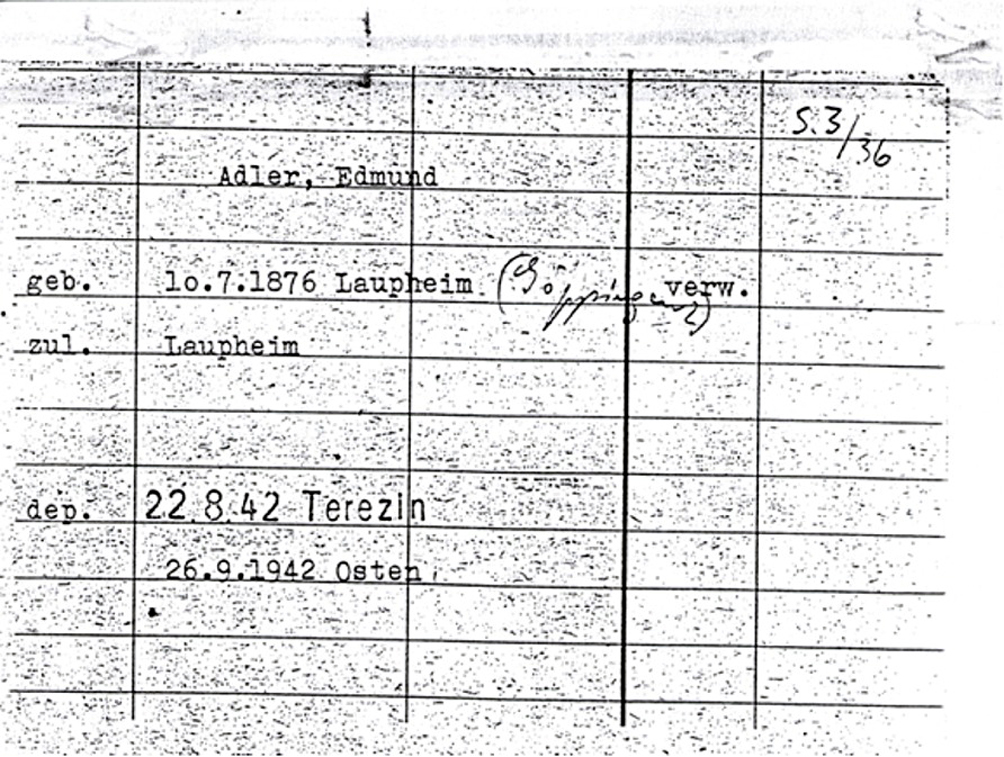 S.3/36
Adler, Edmund
geb. 1o.7.1876 Laupheim (Göppingen?) verw.
zul. Laupheim
dep. 22.8.42 Terezin
26.9.1942 Osten